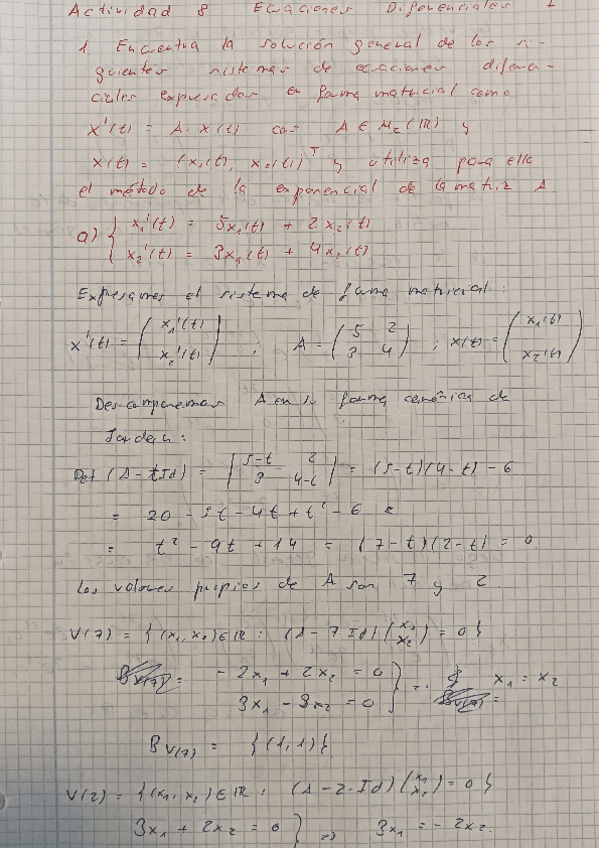 Actividad 8 Ecuaciones Diferenciales I
1. Encuentra la solución general de los si-
guientes sistemas de ecuaciones diferen-
ciales expresados en forma matricial como
X'(t) = A · X(t) con A ∈ M₂(ℝ) y
X(t) = (x₁(t), x₂(t))ᵀ y utiliza para ello
el método de la exponencial de la matriz A
a) { x₁'(t) = 5x₁(t) + 2x₂(t)
x₂'(t) = 3x₁(t) + 4x₂(t)
Expresamos el sistema de forma matricial:
X'(t) = ( x₁'(t) x₂'(t) ) ; A = ( 5 2 3 4 ) ; X(t) = ( x₁(t) x₂(t) )
Descomponemos A en su forma canónica de
Jordan:
Det (A - tId) = | 5-t 2 3 4-t | = (5-t)(4-t) - 6
= 20 - 5t - 4t + t² - 6 =
= t² - 9t + 14 = (7-t)(2-t) = 0
Los valores propios de A son 7 y 2
V(7) = { (x₁, x₂) ∈ ℝ : (A - 7 Id) (x₁ x₂) = 0 }
- 2x₁ + 2x₂ = 0
3x₁ - 3x₂ = 0 } => x₁ = x₂
B V(7) = { (1,1) }
V(2) = { (x₁, x₂) ∈ ℝ : (A - 2·Id) (x₁ x₂) = 0 }
3x₁ + 2x₂ = 0 } => 3x₁ = - 2x₂